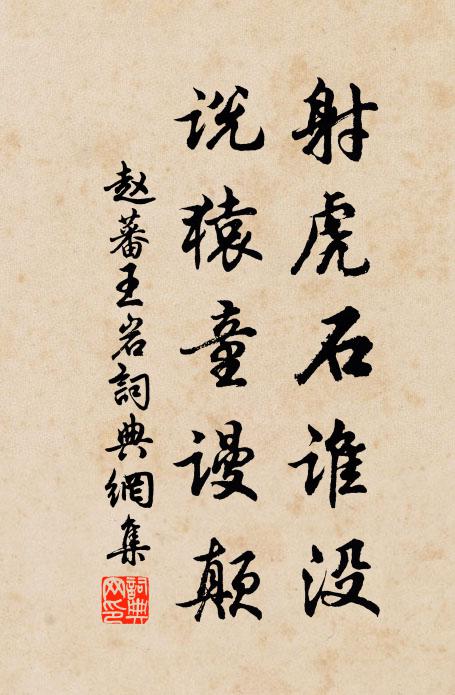 射虎石谁没
说猿童谩颠
赵蕃王岩詞典網集
詞典网印